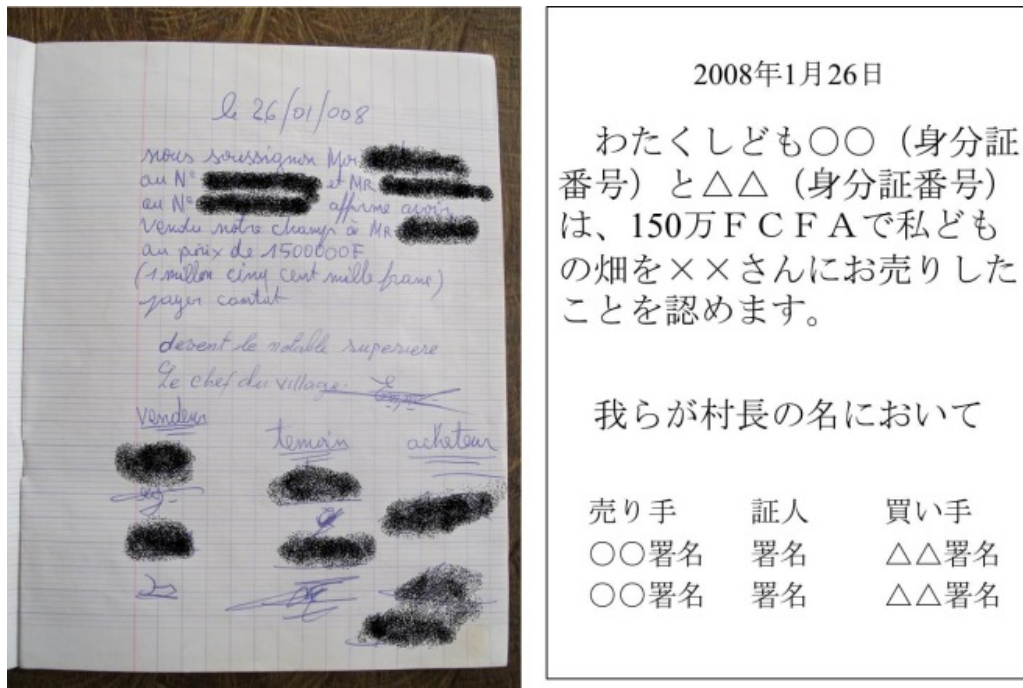 le 26/01/008
nous soussignon Mr
au N° et MR
au N° affirme avoir
vendu notre champ à MR
au prix de 1500000F
(1 millon cinq cent mille franc)
payer contat
devent le notable superiere
Le chef du village
vendeur
temoin
acheteur
2008年1月26日
わたくしども○○（身分証
番号）と△△（身分証番号）
は、150万ＦＣＦＡで私ども
の畑を××さんにお売りした
ことを認めます。
我らが村長の名において
売り手 証人 買い手
○○署名 署名 △△署名
○○署名 署名 △△署名